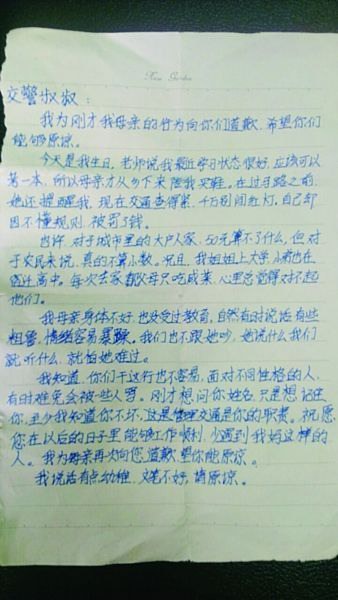 交警叔叔：
我为刚才我母亲的行为向你们道歉，希望你们
能够原谅。
今天是我生日，老师说我最近学习状态很好，应该可以
第一本，所以母亲才从乡下来陪我买鞋。在过马路之前，
她还提醒我，现在交通查得紧，千万别闯红灯，自己却
因不懂规则，被罚了钱。
也许，对于城市里的大户人家，50元算不了什么，但对
于农民来说，真的不算小数。况且，我姐姐上大学，小弟也在
镇江高中。每次去家都父母只吃咸菜，心里总觉得对不起
他们。
我母亲身体不好，也没受过教育，自然有时说话有些
粗鲁，情绪容易暴躁。我们也不跟她吵，她说什么我们
就听什么，就怕她难过。
我知道，你们干这行也不容易，面对不同性格的人，
有时难免会被些人骂。刚才想问你姓名，只是想记住
你，至少我知道你不坏，这是管理交通是你的职责。祝愿
您在以后的日子里能够工作顺利，少遇到我妈这样的
人。我为母亲再次向您道歉，望你能原谅。
我说话有点幼稚，文笔不好，请原谅。